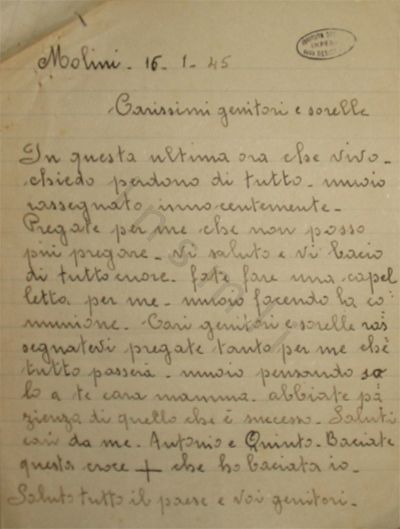 Molini - 16 - 1 - 45
Carissimi genitori e sorelle
In questa ultima ora che vivo -
chiedo perdono di tutto - muoio
rassegnato innocentemente -
Pregate per me che non posso
più pregare - vi saluto e vi bacio
di tutto cuore - fate fare una capel
letta per me - muoio facendo la co
munione - Cari genitori e sorelle ras
segnatevi pregate tanto per me che
tutto passerà - muoio pensando so
lo a te cara mamma - abbiate pa
zienza di quello che è successo - Saluti
cari da me - Antonio e Quinto - Baciate
questa croce + che ho baciata io -
Saluto tutto il paese e voi genitori -